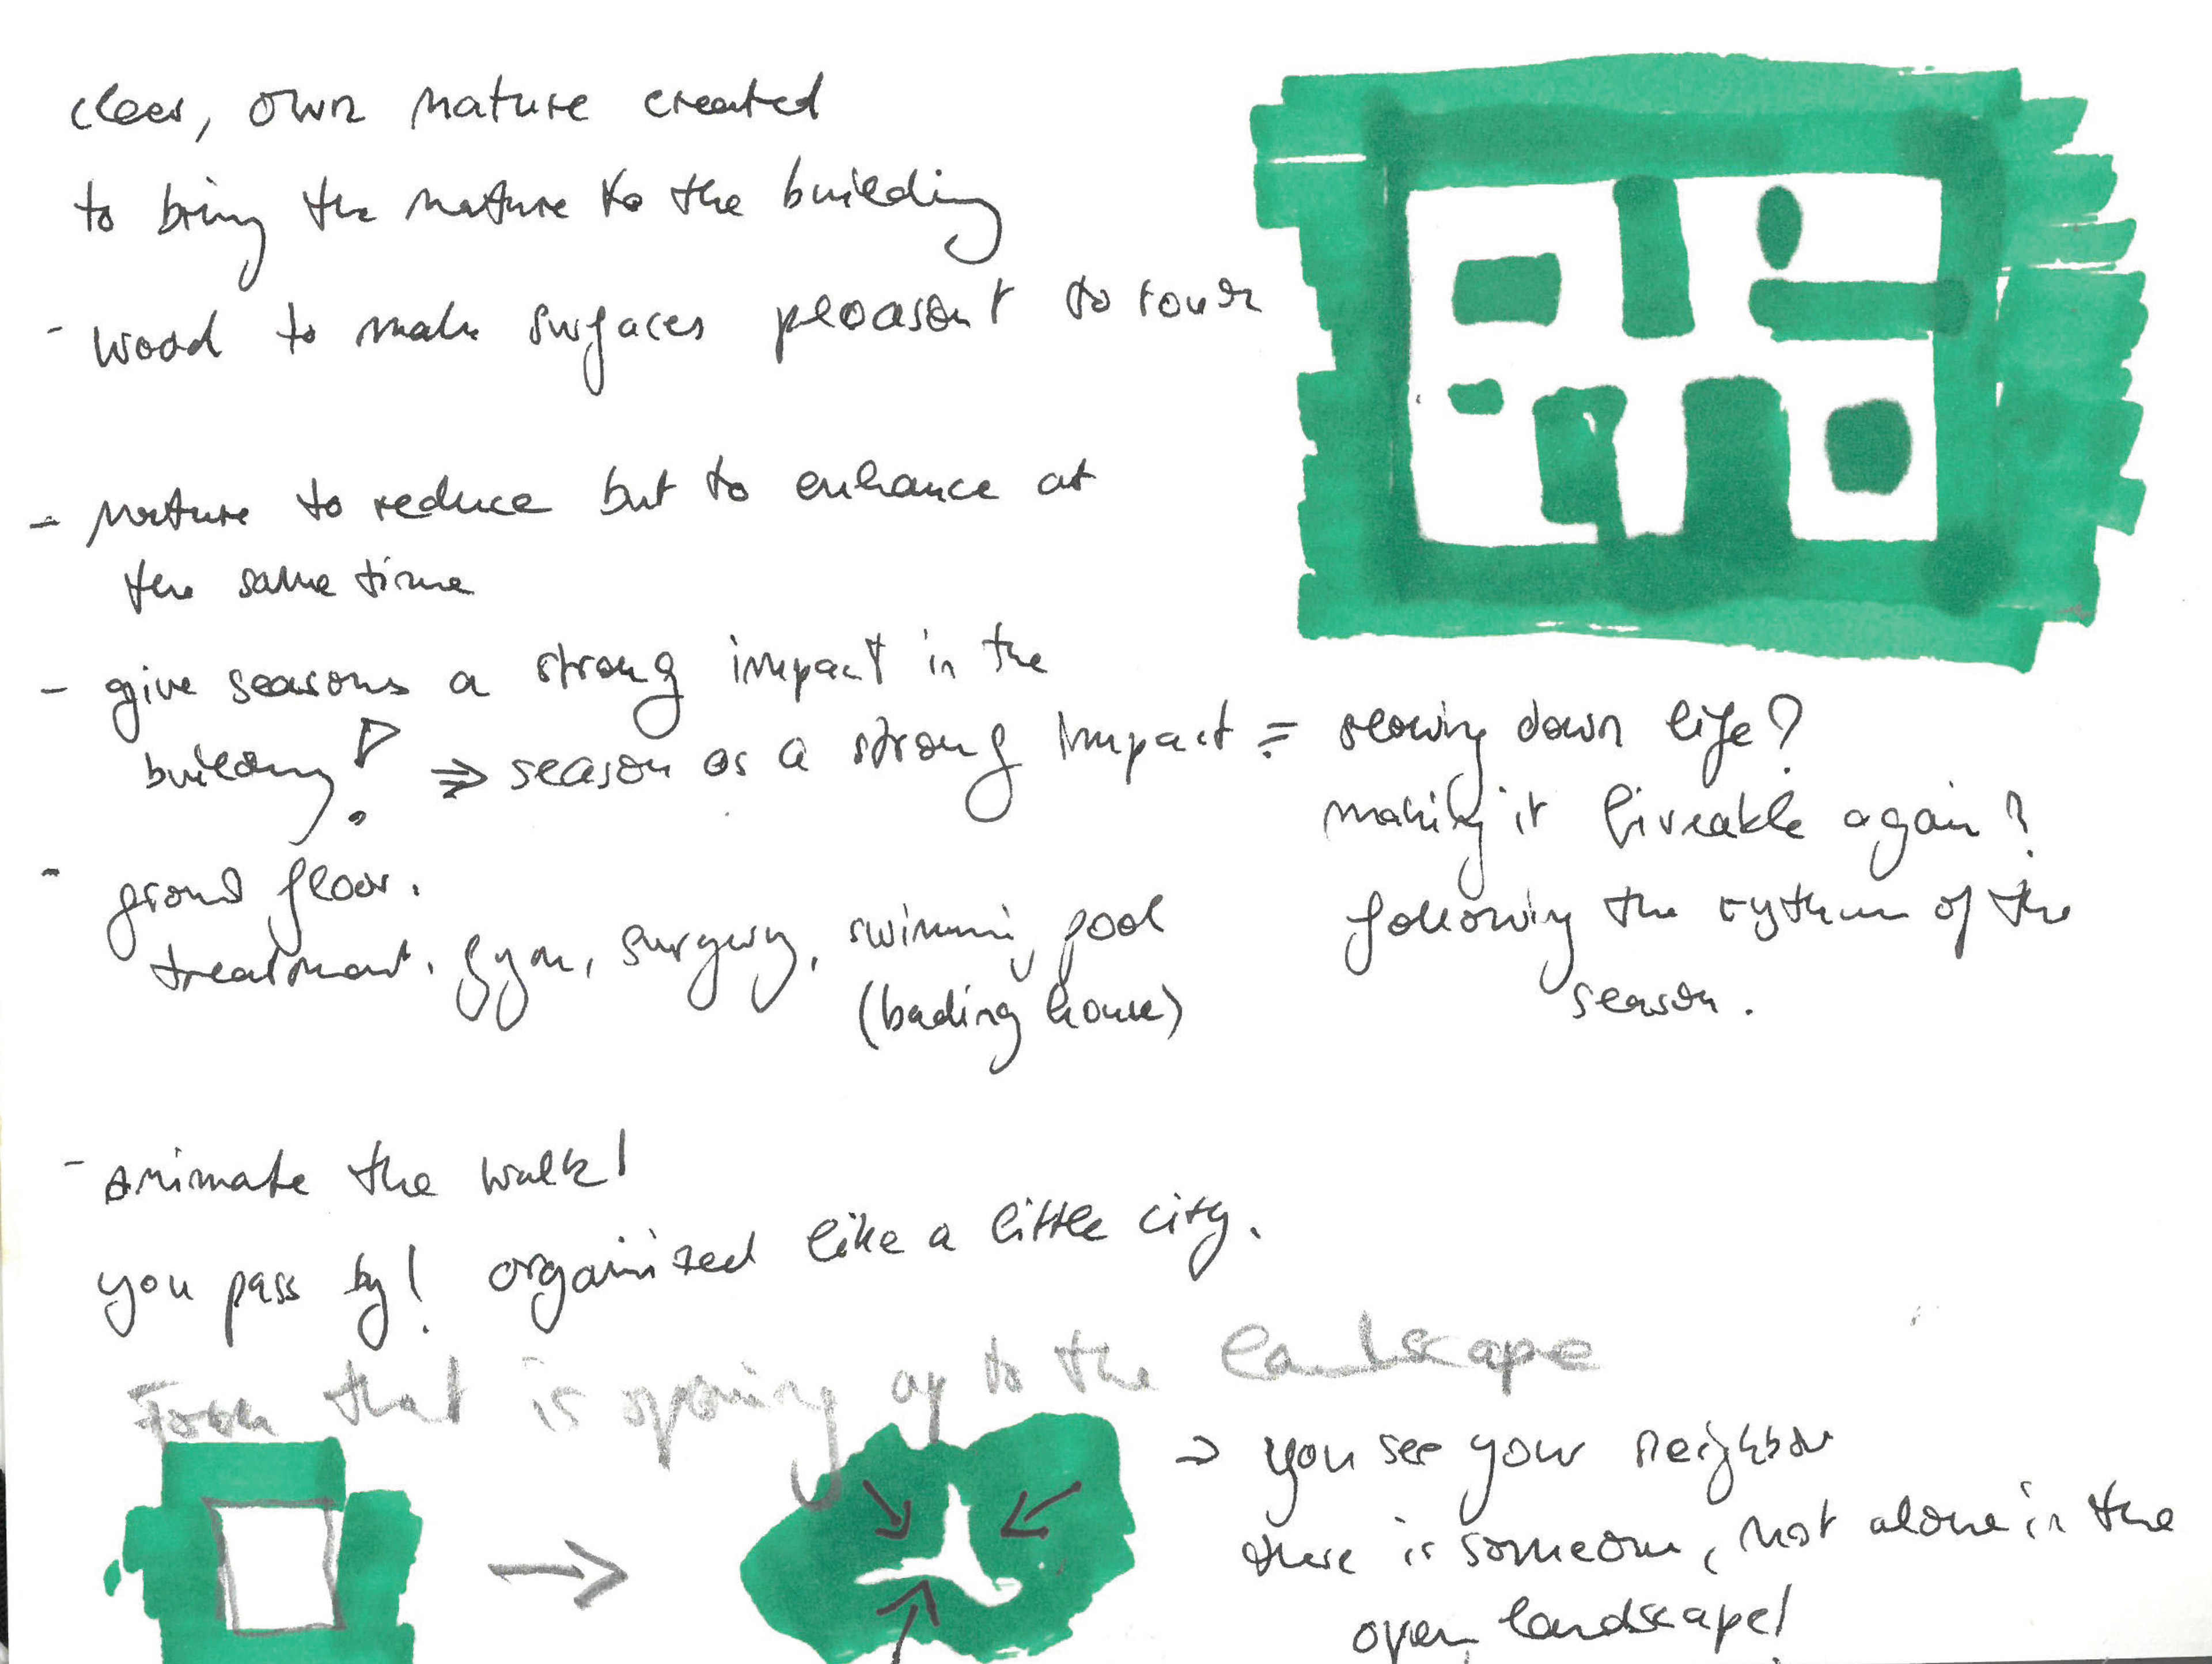 clear, own nature created
to bring the nature to the building
- wood to make surfaces pleasant to touch
- nature to reduce but to enhance at
the same time
- give seasons a strong impact in the
building! ⇒ season as a strong impact = slowing down life?
making it liveable again?
following the rythum of the
season.
- ground floor.
treatment, gym, surgery, swimming pool
(bading house)
- Animate the walk!
you pass by! organized like a little city.
Form that is opening up to the landscape
→
⇒ you see your neighbor
there is someone, not alone in the
open landscape!